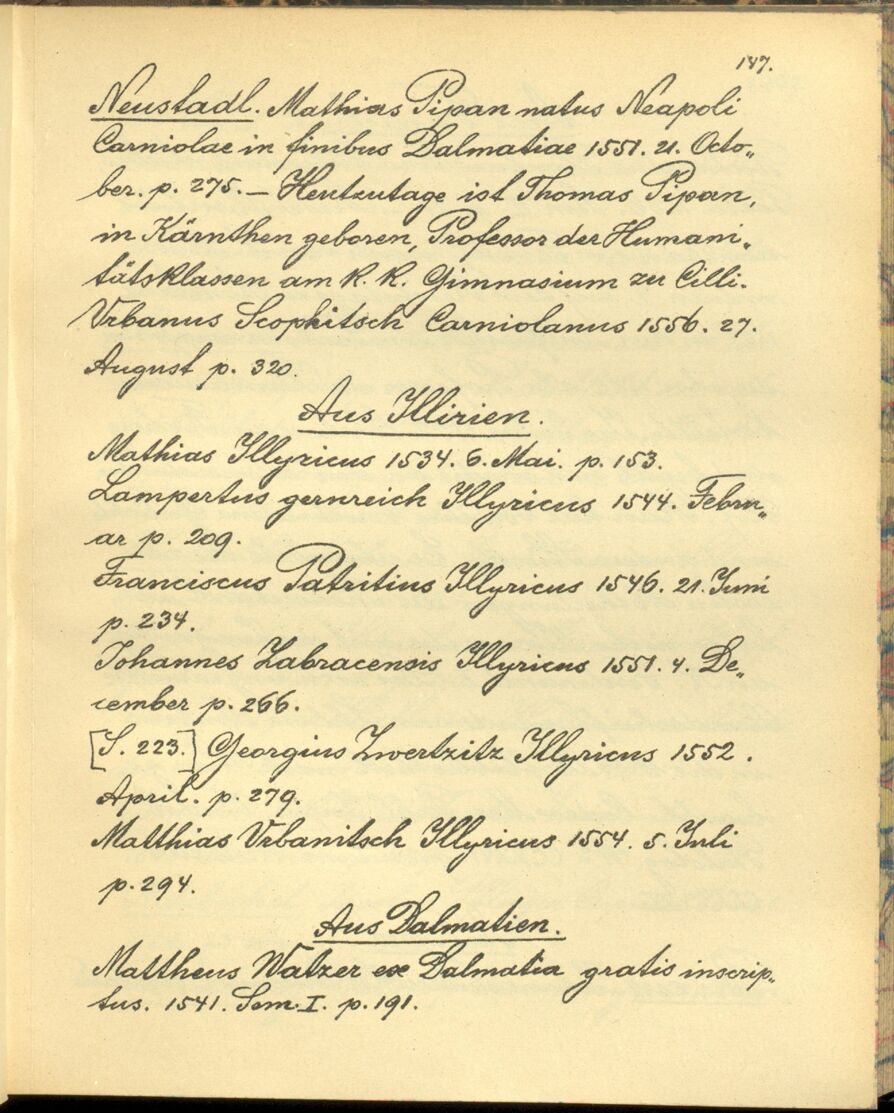 147.
Neustadl. Mathias Pipan natus Neapoli
Carniolae in finibus Dalmatiae 1551. 21. Octo„
ber. p. 275. – Heutzutage ist Thomas Pipan,
in Kärnthen geboren, Professor der Humani„
tätsklassen am k. k. Gimnasium zu Cilli.
Vrbanus Scophitsch Carniolanus 1556. 27.
August p. 320.
Aus Illirien.
Mathias Illyricus 1534. 6. Mai. p. 153.
Lampertus gernreich Illyricus 1544. Febru„
ar p. 209.
Franciscus Patritius Illyricus 1546. 21. Juni
p. 234.
Johannes Zabracensis Illyricus 1551. 4. De„
cember p. 266.
[S. 223.] Georgius Zwertzitz Illyricus 1552.
April. p. 279.
Matthias Vrbanitsch Illyricus 1554. 5. Juli
p. 294.
Aus Dalmatien.
Mattheus Watzer ex Dalmatia gratis inscrip„
tus. 1541. Sem. I. p. 191.